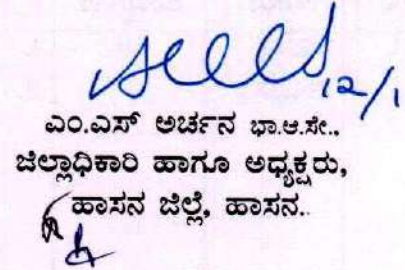 12/1
ಎಂ.ಎಸ್ ಅರ್ಚನ ಭಾ.ಆ.ಸೇ.,
ಜಿಲ್ಲಾಧಿಕಾರಿ ಹಾಗೂ ಅಧ್ಯಕ್ಷರು,
ಹಾಸನ ಜಿಲ್ಲೆ, ಹಾಸನ..